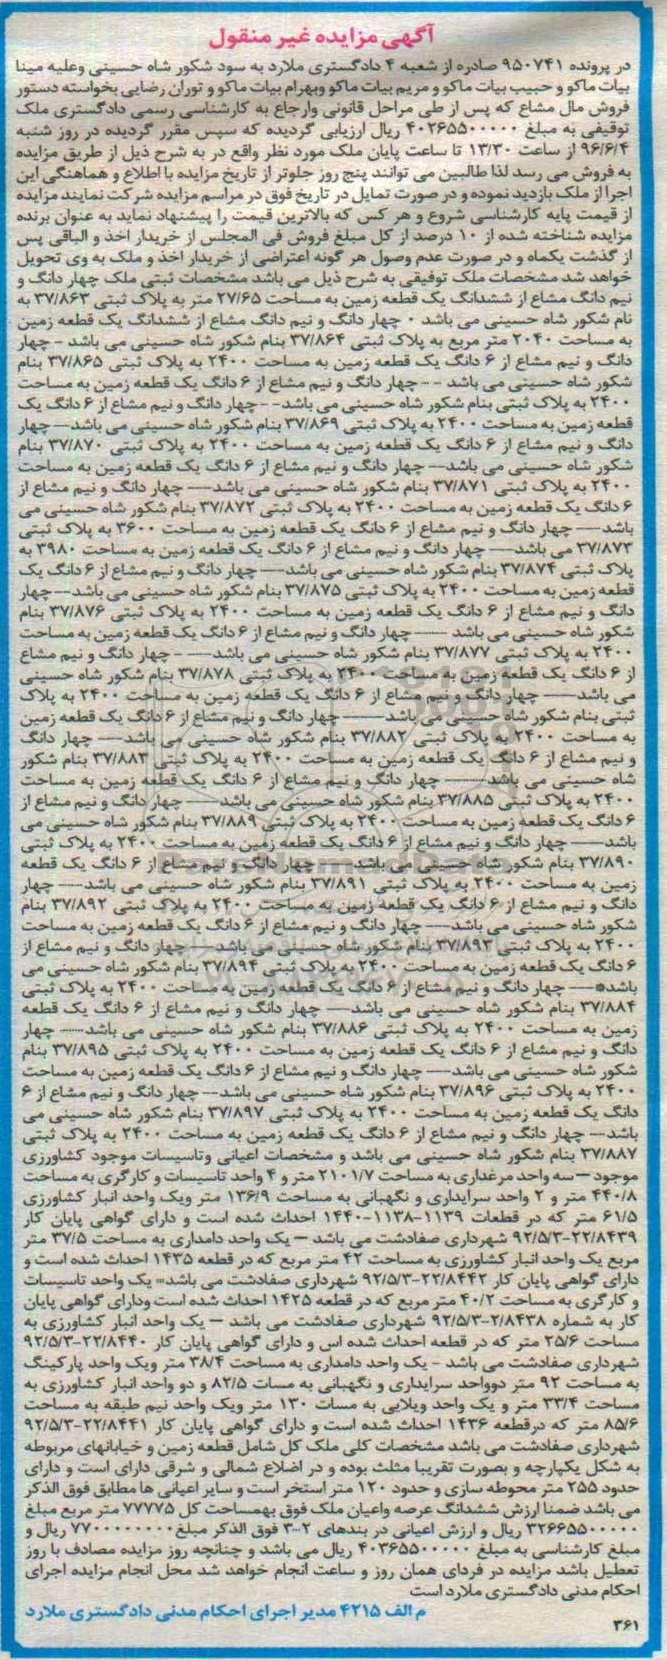 آگهی مزایده غیر منقول
در پرونده ۹۵۰۷۴۱ صادره از شعبه ۴ دادگستری ملارد به سود شکور شاه حسینی وعلیه مینا
بیات ماکو و حبیب بیات ماکو و مریم بیات ماکو وبهرام بیات ماکو و توران رضایی بخواسته دستور
فروش مال مشاع که پس از طی مراحل قانونی وارجاع به کارشناسی رسمی دادگستری ملک
توقیفی به مبلغ ۴۰۲۶۵۵۰۰۰۰۰ ریال ارزیابی گردیده که سپس مقرر گردیده در روز شنبه
۹۶/۶/۴ از ساعت ۱۳/۳۰ تا ساعت پایان ملک مورد نظر واقع در به شرح ذیل از طریق مزایده
به فروش می رسد لذا طالبین می توانند پنج روز جلوتر از تاریخ مزایده با اطلاع و هماهنگی این
اجرا از ملک بازدید نموده و در صورت تمایل در تاریخ فوق در مراسم مزایده شرکت نمایند مزایده
از قیمت پایه کارشناسی شروع و هر کس که بالاترین قیمت را پیشنهاد نماید به عنوان برنده
مزایده شناخته شده از ۱۰ درصد از کل مبلغ فروش فی المجلس از خریدار اخذ و الباقی پس
از گذشت یکماه و در صورت عدم وصول هر گونه اعتراضی از خریدار اخذ و ملک به وی تحویل
خواهد شد مشخصات ملک توقیفی به شرح ذیل می باشد مشخصات ثبتی ملک چهار دانگ و
نیم دانگ مشاع از ششدانگ یک قطعه زمین به مساحت ۲۷/۶۵ متر به پلاک ثبتی ۳۷/۸۶۳ به
نام شکور شاه حسینی می باشد ۰ چهار دانگ و نیم دانگ مشاع از ششدانگ یک قطعه زمین
به مساحت ۲۰۴۰ متر مربع به پلاک ثبتی ۳۷/۸۶۴ بنام شکور شاه حسینی می باشد - چهار
دانگ و نیم مشاع از ۶ دانگ یک قطعه زمین به مساحت ۲۴۰۰ به پلاک ثبتی ۳۷/۸۶۵ بنام
شکور شاه حسینی می باشد -- چهار دانگ و نیم مشاع از ۶ دانگ یک قطعه زمین به مساحت
۲۴۰۰ به پلاک ثبتی بنام شکور شاه حسینی می باشد-- چهار دانگ و نیم مشاع از ۶ دانگ یک
قطعه زمین به مساحت ۲۴۰۰ به پلاک ثبتی ۳۷/۸۶۹ بنام شکور شاه حسینی می باشد—چهار
دانگ و نیم مشاع از ۶ دانگ یک قطعه زمین به مساحت ۲۴۰۰ به پلاک ثبتی ۳۷/۸۷۰ بنام
شکور شاه حسینی می باشد--- چهار دانگ و نیم مشاع از ۶ دانگ یک قطعه زمین به مساحت
۲۴۰۰ به پلاک ثبتی ۳۷/۸۷۱ بنام شکور شاه حسینی می باشد--- چهار دانگ و نیم مشاع از
۶ دانگ یک قطعه زمین به مساحت ۲۴۰۰ به پلاک ثبتی ۳۷/۸۷۲ بنام شکور شاه حسینی می
باشد---- چهار دانگ و نیم مشاع از ۶ دانگ یک قطعه زمین به مساحت ۳۶۰۰ به پلاک ثبتی
۳۷/۸۷۳ می باشد---- چهار دانگ و نیم مشاع از ۶ دانگ یک قطعه زمین به مساحت ۳۹۸۰ به
پلاک ثبتی ۳۷/۸۷۴ بنام شکور شاه حسینی می باشد--- چهار دانگ و نیم مشاع از ۶ دانگ یک
قطعه زمین به مساحت ۲۴۰۰ به پلاک ثبتی ۳۷/۸۷۵ بنام شکور شاه حسینی می باشد---چهار
دانگ و نیم مشاع از ۶ دانگ یک قطعه زمین به مساحت ۲۴۰۰ به پلاک ثبتی ۳۷/۸۷۶ بنام
شکور شاه حسینی می باشد -----چهار دانگ و نیم مشاع از ۶ دانگ یک قطعه زمین به مساحت
۲۴۰۰ به پلاک ثبتی ۳۷/۸۷۷ بنام شکور شاه حسینی می باشد---- - چهار دانگ و نیم مشاع
از ۶ دانگ یک قطعه زمین به مساحت ۲۴۰۰ به پلاک ثبتی ۳۷/۸۷۸ بنام شکور شاه حسینی
می باشد---- چهار دانگ و نیم مشاع از ۶ دانگ یک قطعه زمین به مساحت ۲۴۰۰ به پلاک
ثبتی بنام شکور شاه حسینی می باشد------ چهار دانگ و نیم مشاع از ۶ دانگ یک قطعه زمین
به مساحت ۲۴۰۰ به پلاک ثبتی ۳۷/۸۸۲ بنام شکور شاه حسینی می باشد---- چهار دانگ
و نیم مشاع از ۶ دانگ یک قطعه زمین به مساحت ۲۴۰۰ به پلاک ثبتی ۳۷/۸۸۳ بنام شکور
شاه حسینی می باشد------- چهار دانگ و نیم مشاع از ۶ دانگ یک قطعه زمین به مساحت
۲۴۰۰ به پلاک ثبتی ۳۷/۸۸۵ بنام شکور شاه حسینی می باشد----- چهار دانگ و نیم مشاع از
۶ دانگ یک قطعه زمین به مساحت ۲۴۰۰ به پلاک ثبتی ۳۷/۸۸۹ بنام شکور شاه حسینی می
باشد----- چهار دانگ و نیم مشاع از ۶ دانگ یک قطعه زمین به مساحت ۲۴۰۰ به پلاک ثبتی
۳۷/۸۹۰ بنام شکور شاه حسینی می باشد----- چهار دانگ و نیم مشاع از ۶ دانگ یک قطعه
زمین به مساحت ۲۴۰۰ به پلاک ثبتی ۳۷/۸۹۱ بنام شکور شاه حسینی می باشد---- چهار
دانگ و نیم مشاع از ۶ دانگ یک قطعه زمین به مساحت ۲۴۰۰ به پلاک ثبتی ۳۷/۸۹۲ بنام
شکور شاه حسینی می باشد---- چهار دانگ و نیم مشاع از ۶ دانگ یک قطعه زمین به مساحت
۲۴۰۰ به پلاک ثبتی ۳۷/۸۹۳ بنام شکور شاه حسینی می باشد---- چهار دانگ و نیم مشاع از
۶ دانگ یک قطعه زمین به مساحت ۲۴۰۰ به پلاک ثبتی ۳۷/۸۹۴ بنام شکور شاه حسینی می
باشد*---- چهار دانگ و نیم مشاع از ۶ دانگ یک قطعه زمین به مساحت ۲۴۰۰ به پلاک ثبتی
۳۷/۸۸۴ بنام شکور شاه حسینی می باشد---- چهار دانگ و نیم مشاع از ۶ دانگ یک قطعه
زمین به مساحت ۲۴۰۰ به پلاک ثبتی ۳۷/۸۸۶ بنام شکور شاه حسینی می باشد------ چهار
دانگ و نیم مشاع از ۶ دانگ یک قطعه زمین به مساحت ۲۴۰۰ به پلاک ثبتی ۳۷/۸۹۵ بنام
شکور شاه حسینی می باشد---- چهار دانگ و نیم مشاع از ۶ دانگ یک قطعه زمین به مساحت
۲۴۰۰ به پلاک ثبتی ۳۷/۸۹۶ بنام شکور شاه حسینی می باشد--- چهار دانگ و نیم مشاع از ۶
دانگ یک قطعه زمین به مساحت ۲۴۰۰ به پلاک ثبتی ۳۷/۸۹۷ بنام شکور شاه حسینی می
باشد--- چهار دانگ و نیم مشاع از ۶ دانگ یک قطعه زمین به مساحت ۲۴۰۰ به پلاک ثبتی
۳۷/۸۸۷ بنام شکور شاه حسینی می باشد و مشخصات اعیانی وتاسیسات موجود کشاورزی
موجود—سه واحد مرغداری به مساحت ۲۱۰۱/۷ متر و ۴ واحد تاسیسات و کارگری به مساحت
۴۴۰/۸ متر و ۲ واحد سرایداری و نگهبانی به مساحت ۱۳۶/۹ متر ویک واحد انبار کشاورزی
۶۱/۵ متر که در قطعات ۱۱۳۹-۱۱۳۸-۱۴۴۰ احداث شده است و دارای گواهی پایان کار
۲۲/۸۴۳۹-۹۲/۵/۳ شهرداری صفادشت می باشد – یک واحد دامداری به مساحت ۳۷/۵ متر
مربع یک واحد انبار کشاورزی به مساحت ۴۲ متر مربع که در قطعه ۱۴۳۵ احداث شده است و
دارای گواهی پایان کار ۲۲/۸۴۴۲-۹۲/۵/۳ شهرداری صفادشت می باشد= یک واحد تاسیسات
و کارگری به مساحت ۴۰/۲ متر مربع که در قطعه ۱۴۲۵ احداث شده است ودارای گواهی پایان
کار به شماره ۲/۸۴۳۸-۹۲/۵/۳ شهرداری صفادشت می باشد – یک واحد انبار کشاورزی به
مساحت ۲۵/۶ متر که در قطعه احداث شده اس و دارای گواهی پایان کار ۲۲/۸۴۴۰-۹۲/۵/۳
شهرداری صفادشت می باشد - یک واحد دامداری به مساحت ۳۸/۴ متر ویک واحد پارکینگ
به مساحت ۹۲ متر دوواحد سرایداری و نگهبانی به مسات ۸۲/۵ و دو واحد انبار کشاورزی به
مساحت ۳۳/۴ متر و یک واحد ویلایی به مسات ۱۳۰ متر ویک واحد نیم طبقه به مساحت
۸۵/۶ متر که درقطعه ۱۴۳۶ احداث شده است و دارای گواهی پایان کار ۲۲/۸۴۴۱-۹۲/۵/۳
شهرداری صفادشت می باشد مشخصات کلی ملک کل شامل قطعه زمین و خیابانهای مربوطه
به شکل یکپارچه و بصورت تقریبا مثلث بوده و در اضلاع شمالی و شرقی دارای است و دارای
حدود ۲۵۵ متر محوطه سازی و حدود ۱۲۰ متر استخر است و سایر اعیانی ها مطابق فوق الذکر
می باشد ضمنا ارزش ششدانگ عرصه واعیان ملک فوق بهمساحت کل ۷۷۷۷۵ متر مربع مبلغ
۳۲۶۶۵۵۰۰۰۰۰ ریال و ارزش اعیانی در بندهای ۲-۳ فوق الذکر مبلغ ۷۷۰۰۰۰۰۰۰۰ ریال و
مبلغ کارشناسی به مبلغ ۴۰۳۶۵۵۰۰۰۰۰ ریال می باشد و چنانچه روز مزایده مصادف با روز
تعطیل باشد مزایده در فردای همان روز و ساعت انجام خواهد شد محل انجام مزایده اجرای
احکام مدنی دادگستری ملارد است
م الف ۴۲۱۵ مدیر اجرای احکام مدنی دادگستری ملارد
۳۶۱